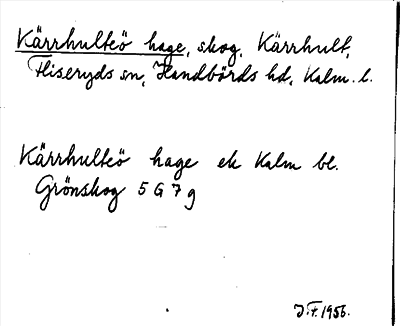 Kärrhulteö hage, skog, Kärrhult,
Fliseryds sn, Handbörds hd, Kalm. l.
Kärrhulteö hage ek Kalm bl.
Grönskog 5 G 7 g
J.F. 1956.